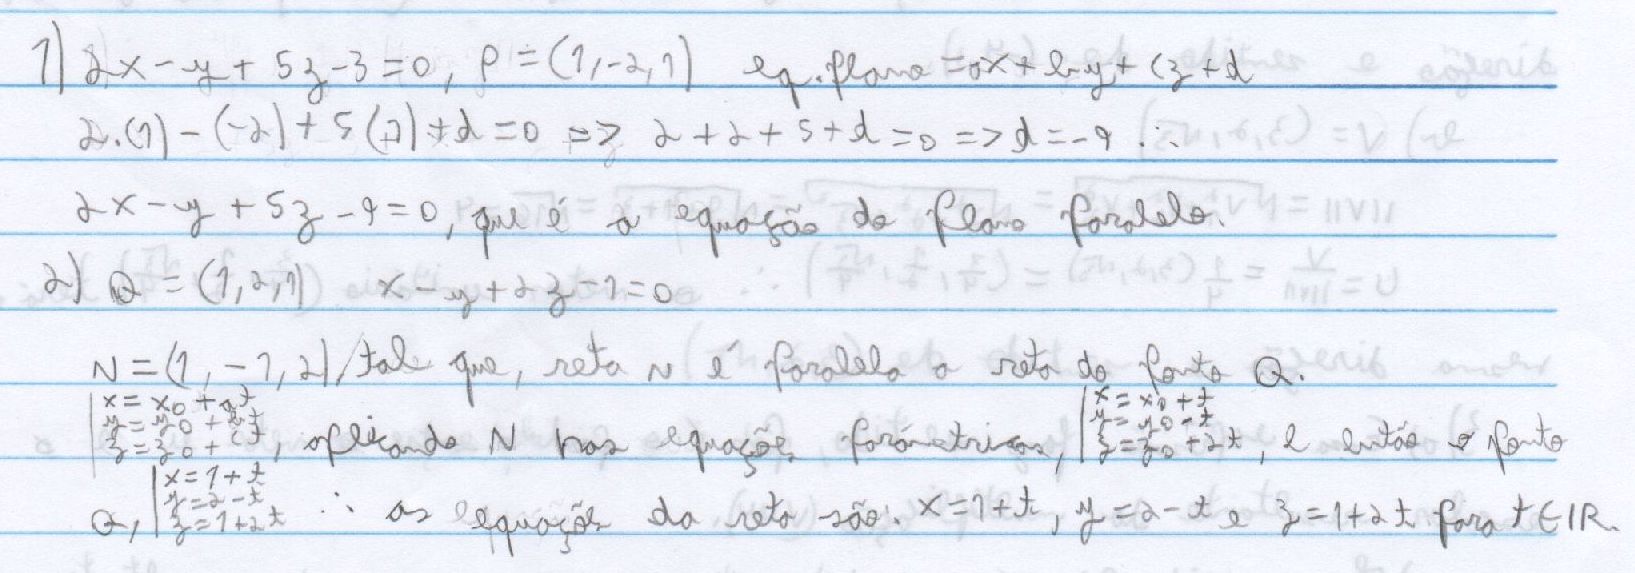 1) 2x - y + 5z - 3 = 0, P = (1, -2, 1) eq. plano = ax + by + cz + d
2.(1) - (-2) + 5(1) + d = 0 => 2 + 2 + 5 + d = 0 => d = -9 ∴
2x - y + 5z - 9 = 0, que é a equação do plano paralelo.
2) Q = (1, 2, 1) x - y + 2z - 1 = 0
N = (1, -1, 2), tal que, reta N é paralela a reta do ponto Q.
| x = x0 + at
| y = y0 + bt
| z = z0 + ct, aplicando N nas equações paramétricas, | x = x0 + t
| y = y0 - t
| z = z0 + 2t, e então o ponto
Q, | x = 1 + t
| y = 2 - t
| z = 1 + 2t ∴ as equações da reta são: x = 1 + t, y = 2 - t e z = 1 + 2t para t ∈ IR.